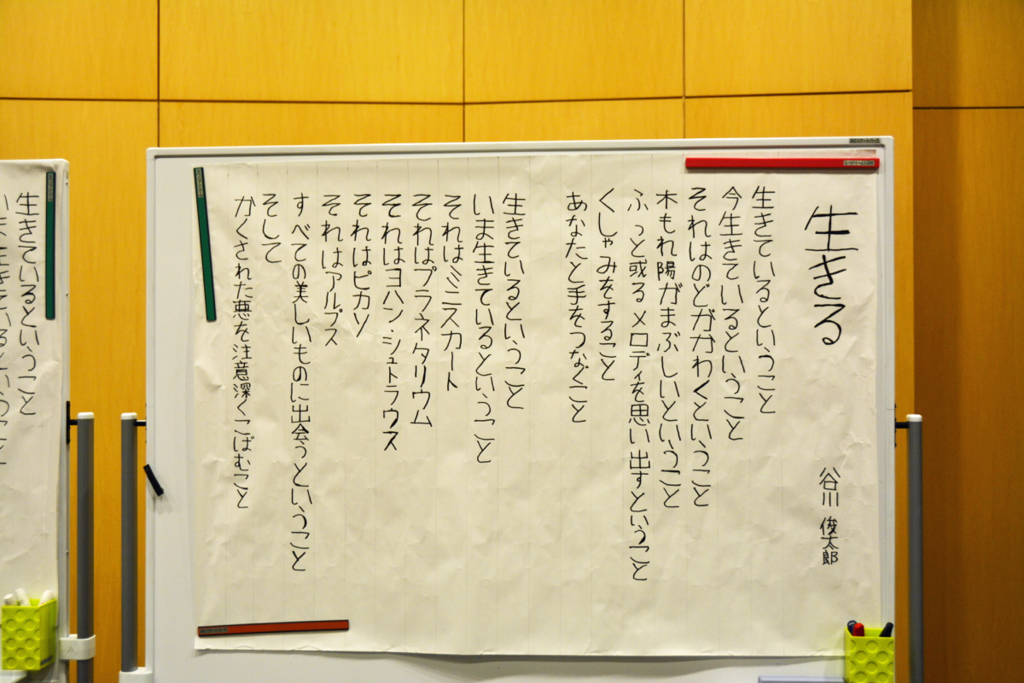 生きる
谷川 俊太郎
生きているということ
今生きているということ
それはのどがかわくということ
木もれ陽がまぶしいということ
ふっと或るメロディを思い出すということ
くしゃみをすること
あなたと手をつなぐこと
生きているということ
いま生きているということ
それはミニスカート
それはプラネタリウム
それはヨハン・シュトラウス
それはピカソ
それはアルプス
すべての美しいものに出会うということ
そして
かくされた悪を注意深くこばむこと
生きているということ